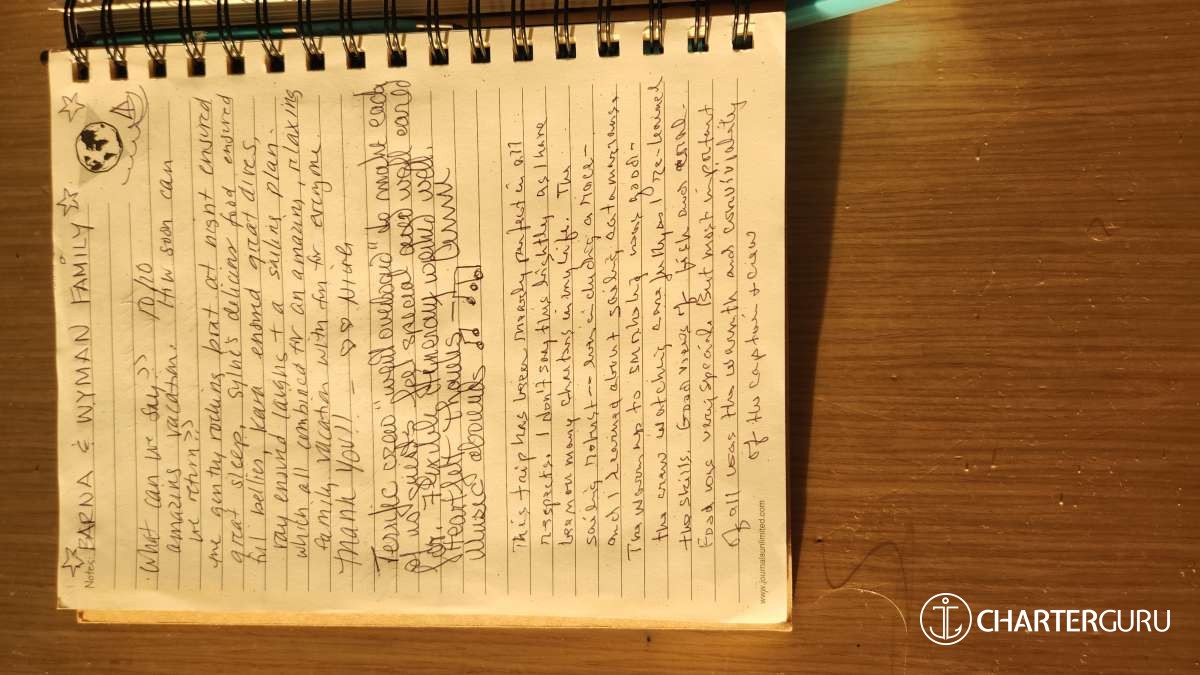 Notes:
FARNA & NYMAN FAMILY
What can we say?? 10/10
amazing vacation. How soon can
we return??
The gently rocking boat at night ensured
great sleep, Sylvie's delicious food ensured
full bellies, Kava ensured great dives,
Ray ensured laughs + a sailing plan
which all combined for an amazing, relaxing
family vacation with fun for everyone.
Thank you!! -
Terrific crew "went overboard" to make each
of us guests feel special and well cared
for. Flexible itinerary worked well.
Heartfelt thanks -
Music abounds
This trip has been nearly perfect in all
respects. I don't say this lightly as I have
been on many charters in my life. The
sailing robust -- even including a race -
and I learned about sailing catamarans.
The warm up to snorkeling was good -
the crew watching carefully as I re-learned
the skills. Good views of fish and coral.
Food was very special. But most important
of all was the warmth and conviviality
of the captain + crew
www.journalsunlimited.com
CHARTERGURU